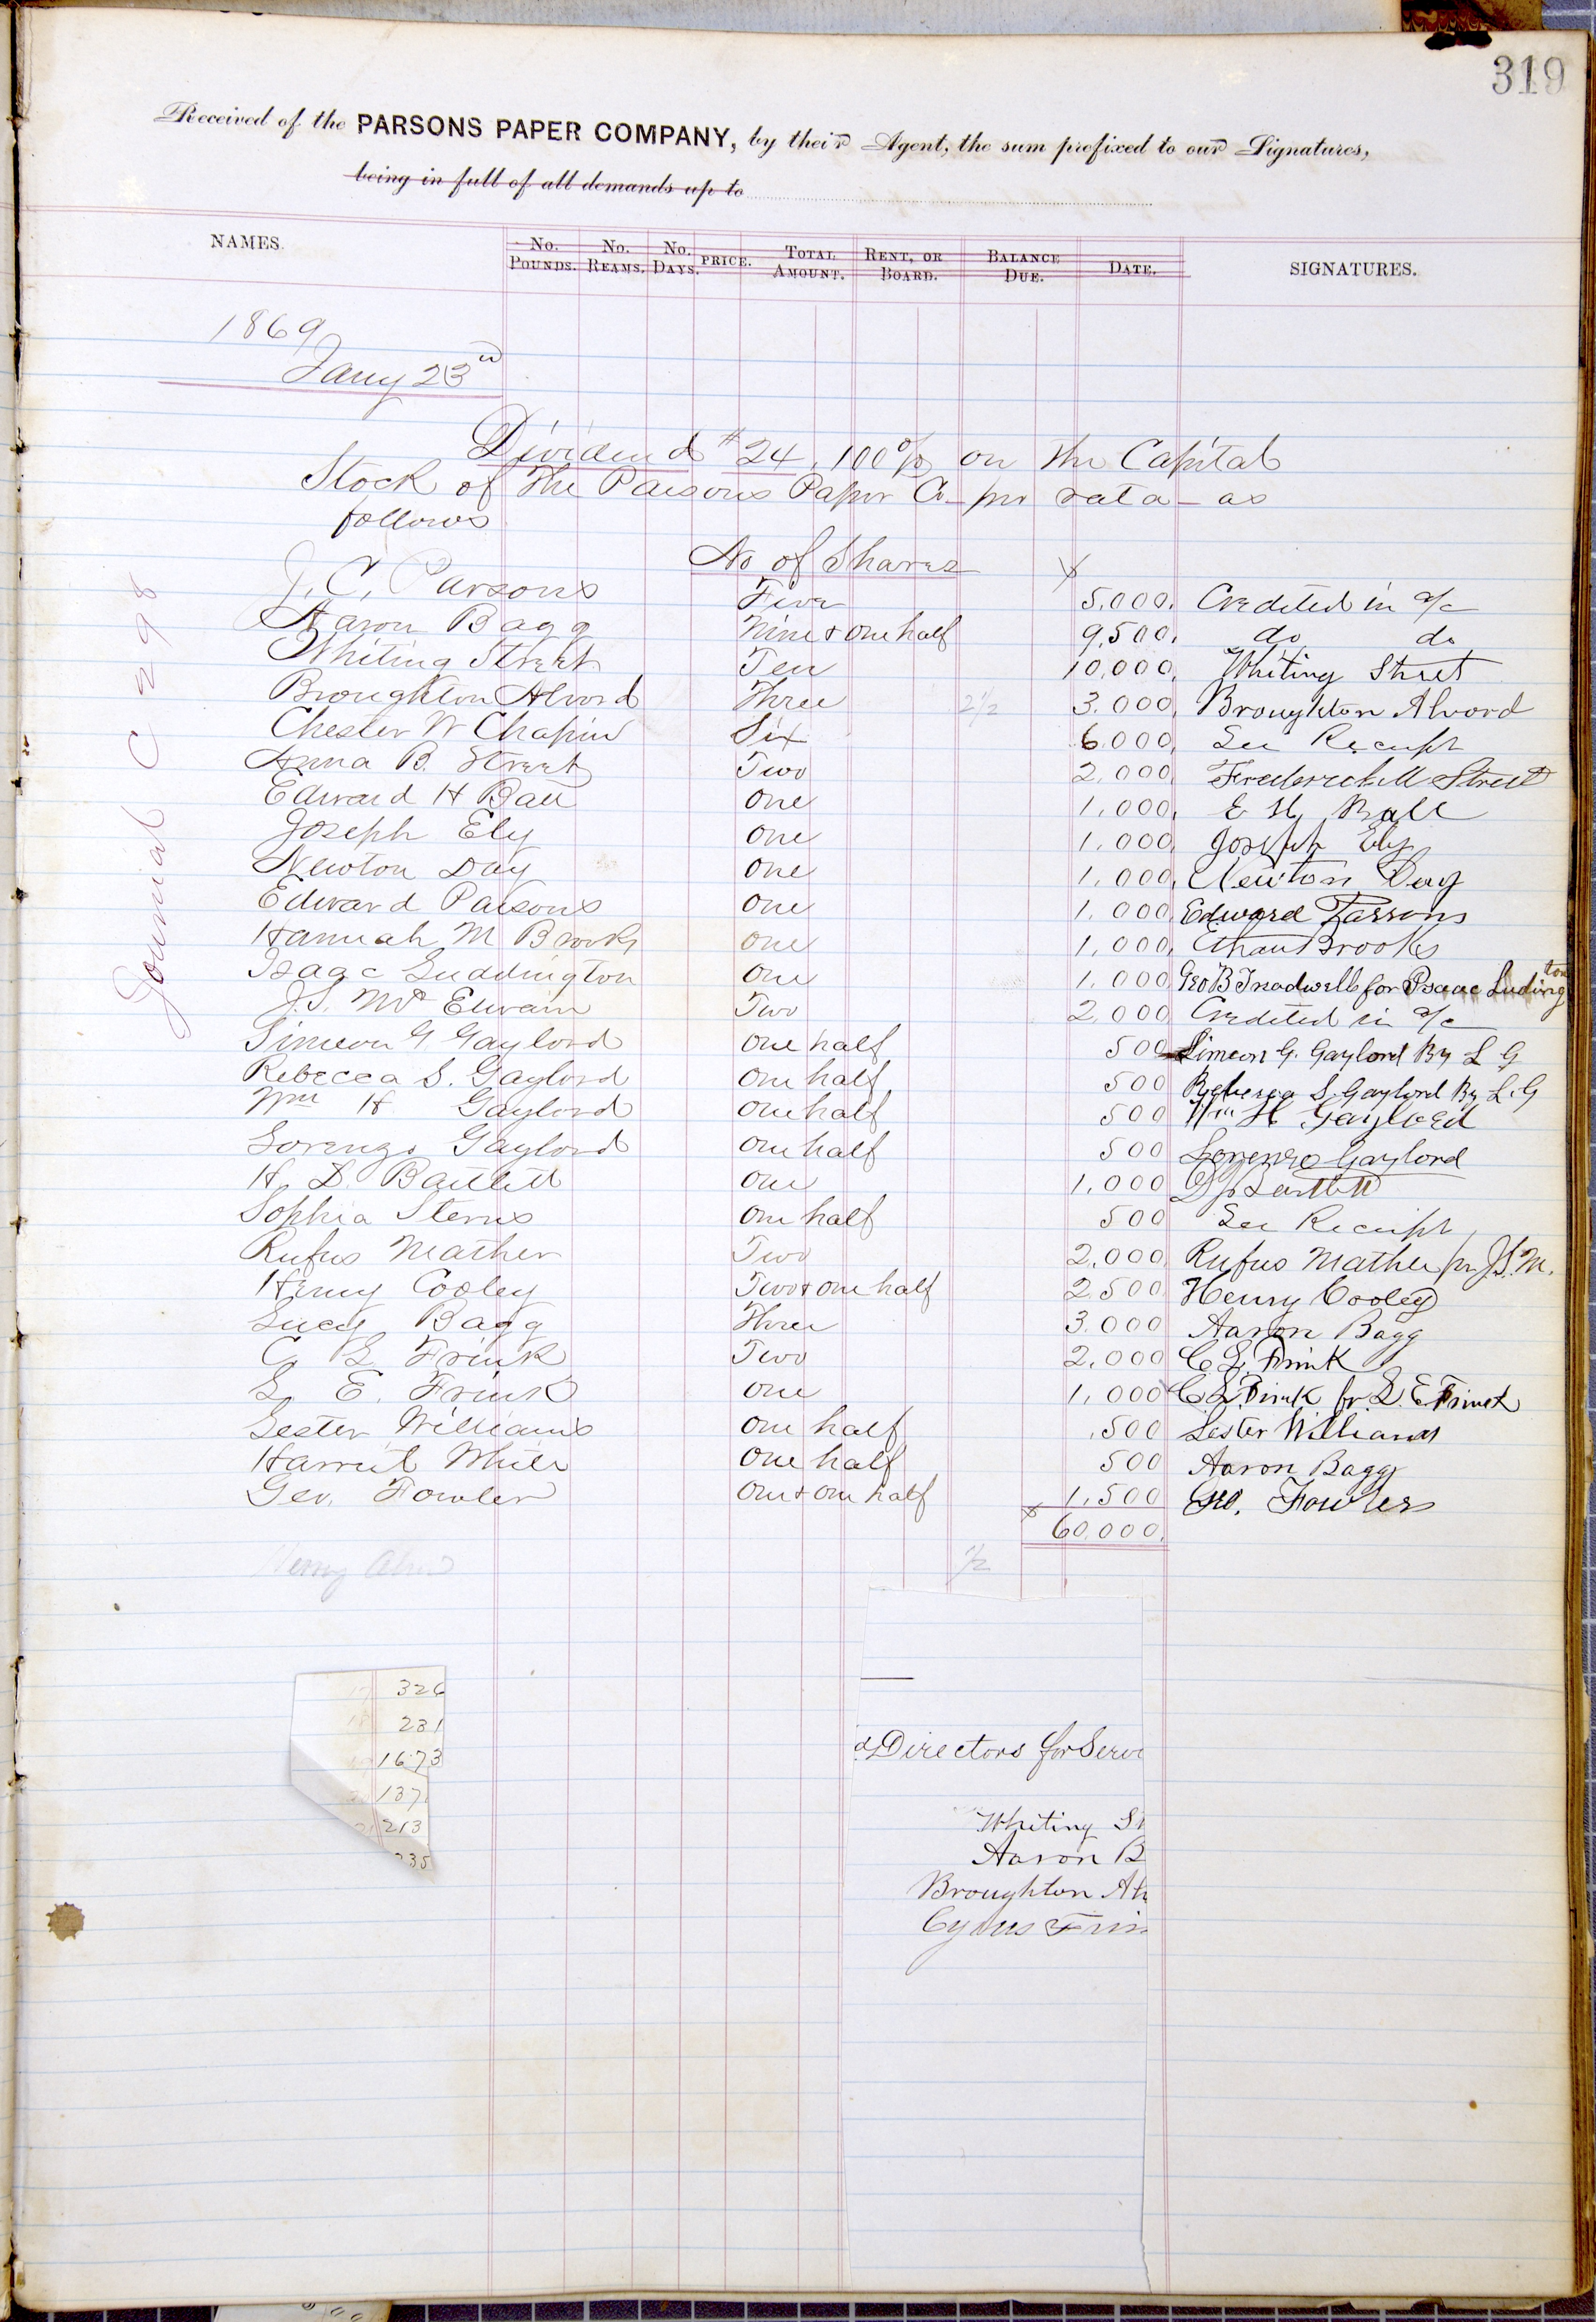 319
Received of the PARSONS PAPER COMPANY, by their Agent, the sum prefixed to our Signatures,
being in full of all demands up to
NAMES. No. Pounds. No. Reams. No. Days. PRICE. Total Amount. Rent, or Board. Balance Due. Date. SIGNATURES.
1869
Jany 23d
Dividend #24, 100% on the Capital
Stock of The Parsons Paper Co pro rata - as
follows
No of Shares $
J. C. Parsons Five 5.000. Credited in a/c
Aaron Bagg Nine & one half 9,500. do do
Whiting Street Ten 10,000, Whiting Street
Broughton Alvord Three 2 1/2 3.000, Broughton Alvord
Chester W Chapin Six 6.000, See Receipt
Anna B. Street Two 2.000, Frederick M Street
Edward H Ball One 1,000, E H Ball
Joseph Ely One 1,000, Joseph Ely
Newton Day One 1,000, Newton Day
Edward Parsons One 1,000 Edward Parsons
Hannah M Brooks One 1,000, Ethan Brooks
Isaac Luddington One 1,000 Geo B Treadwell for Isaac Ludington
J. S. McElwain Two 2,000 Credited in a/c
Simeon G Gaylord One half 500 Simeon G. Gaylord By L G
Rebecca S. Gaylord One half 500 Rebecca S. Gaylord By L. G
Wm H Gaylord One half 500 Wm H Gaylord
Lorenzo Gaylord One half 500 Lorenzo Gaylord
H. D. Bartlett One 1,000 Bartlett
Sophia Sterns One half 500 See Receipt
Rufus Mather Two 2,000, Rufus Mather pr J.S.M.
Henry Cooley Two & one half 2,500 Henry Cooley
Lucy Bagg Three 3.000 Aaron Bagg
C L Frink Two 2,000 C L Frink
L E. Frink One 1,000 C L Frink for L. E Frink
Lester Williams One half ,500 Lester Williams
Harriet White One half 500 Aaron Bagg
Geo. Fowler One & one half 1,500 Geo. Fowler
$ 60,000.
1/2
Journal C 298
326
231
1673
137
213
235
Directors for Serv
Whiting St
Aaron B
Broughton Al
Cyrus Frin